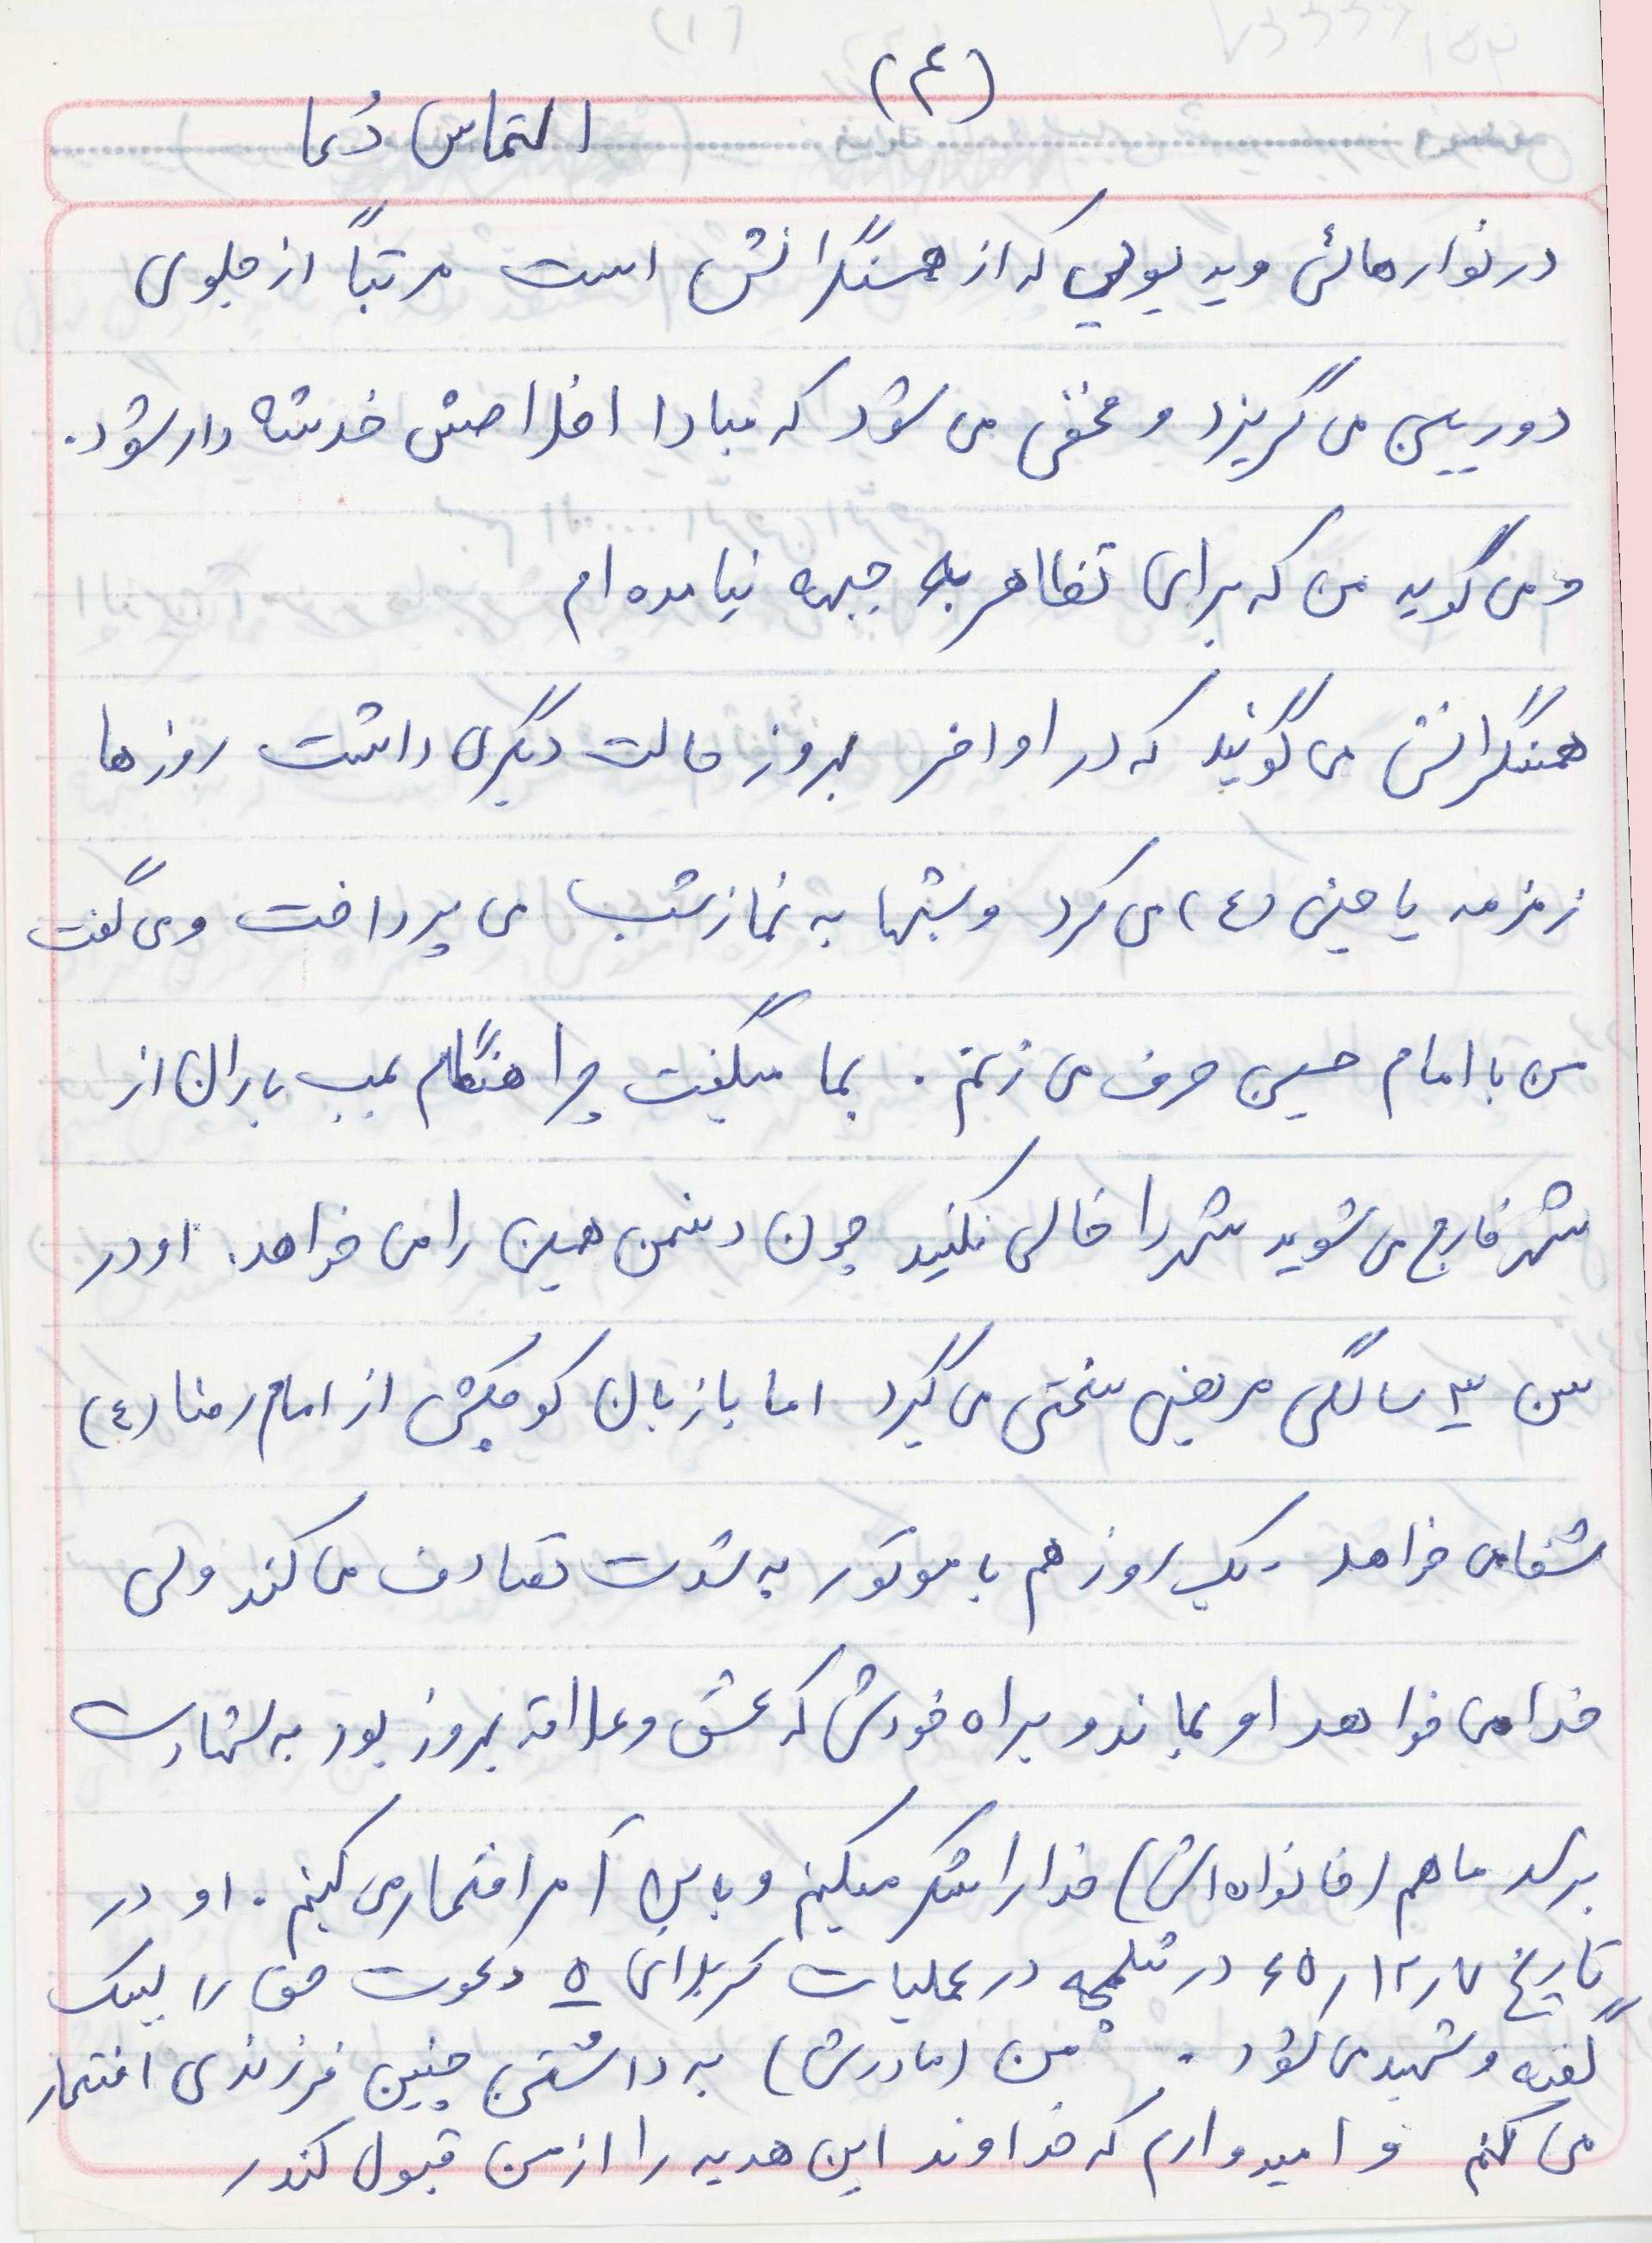 (۴)
التماس دُعا
در نوارهائی ویدیویی که از همسنگرانش است مرتباً از جلوی
دوربین می گریزد و مخفی می شود که مبادا اخلاصش خدشه دار شود.
و می گوید من که برای تظاهر به جبهه نیامده ام
همسنگرانش می گویند که در اواخر بهروز حالت دیگری داشت روزها
زمزمه یا حسین (ع) می کرد و شبها به نماز شب می پرداخت و می گفت
من با امام حسین حرف می زنم . بما میگفت چرا هنگام بمب باران از
شهر خارج می شوید شهر را خالی نکنید چون دشمن همین را می خواهد. او در
سن ۳ سالگی مریضی سختی می گیرد اما با زبان کوچکش از امام رضا (ع)
شفا می خواهد . یک روز هم با موتور به شدت تصادف می کند ولی
خدا می خواهد او بماند و براه خودش که عشق و علاقه بهروز بود به شهادت
برسد ما هم (خانواده اش) خدا را شکر میکنیم و با این امر افتخار می کنیم . او در
تاریخ ۷ر۱۲ر۶۵ در شلمچه در عملیات کربلای ۵ دعوت حق را لبیک
گفته و شهید می شود . من (مادرش) به داشتن چنین فرزندی افتخار
می کنم و امیدوارم که خداوند این هدیه را از من قبول کند